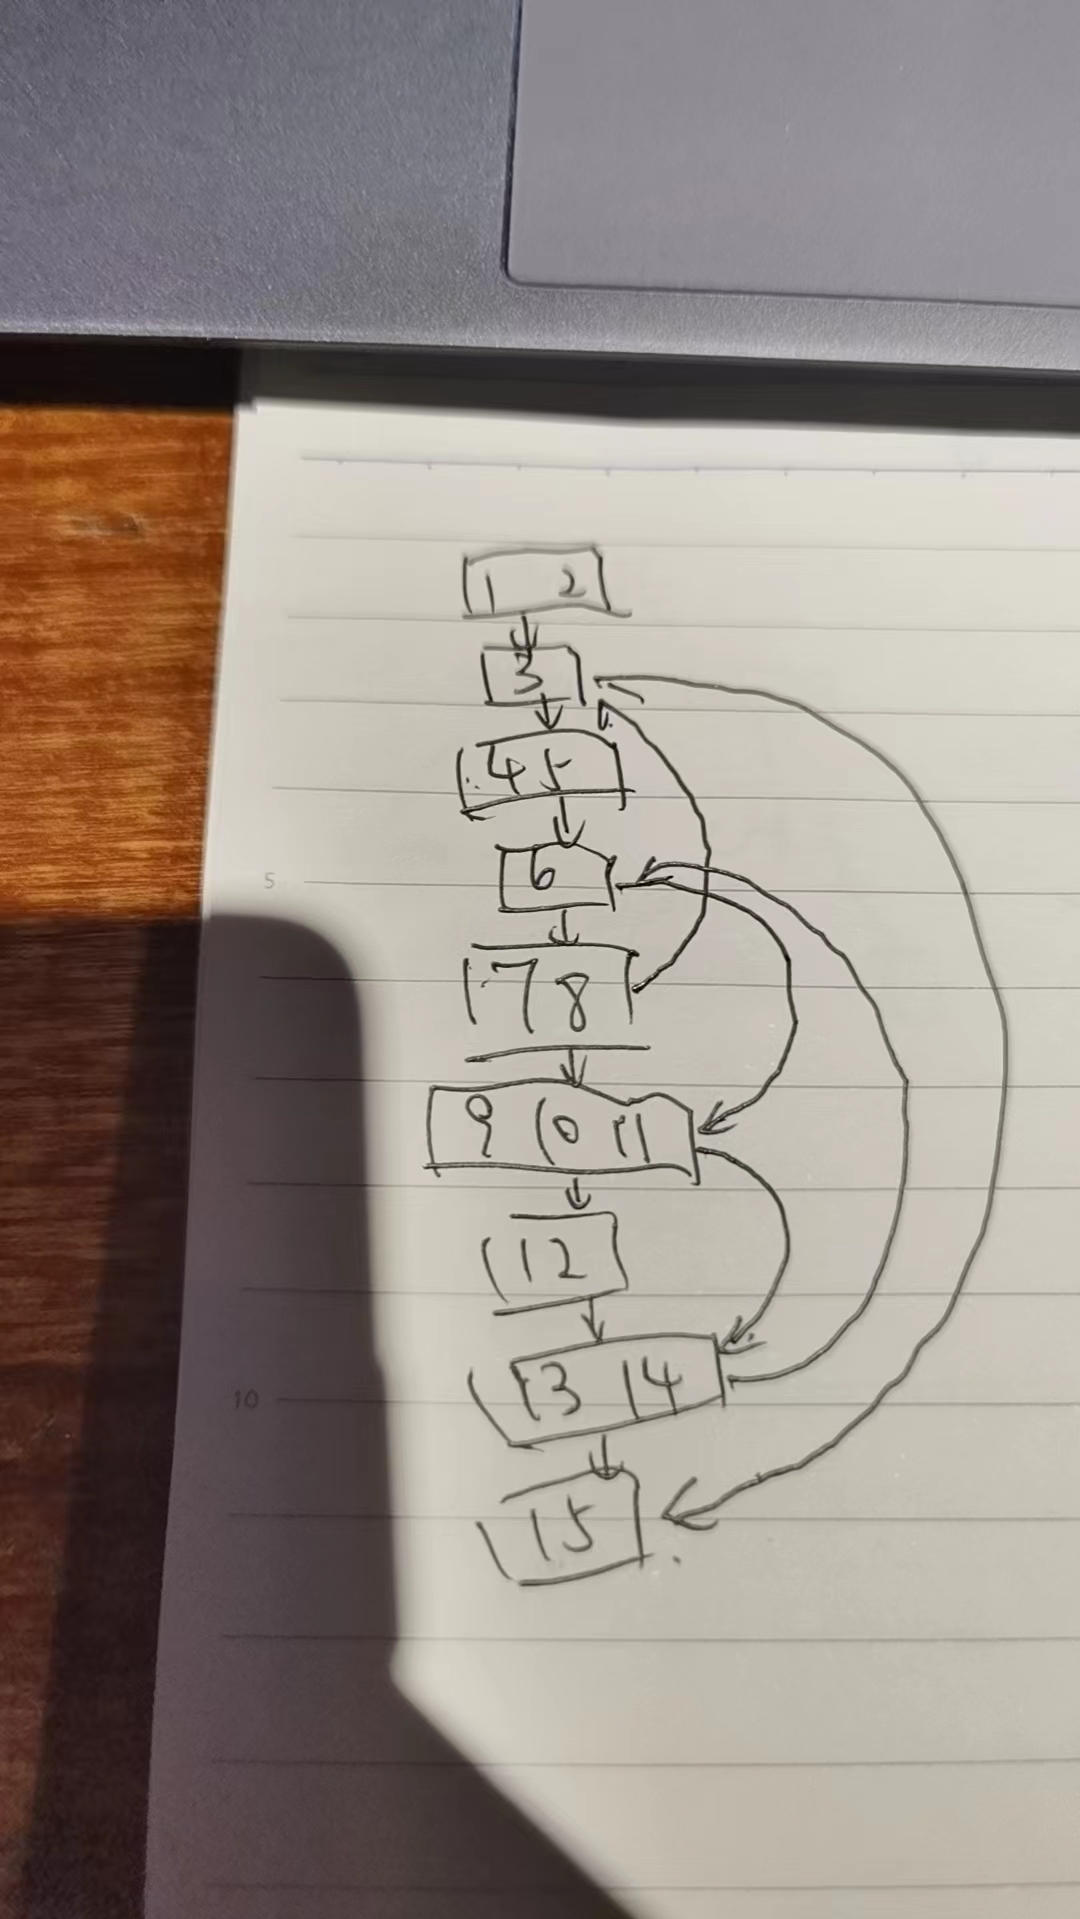 1 2
3
4 5
6
5
7 8
9 10 11
12
13 14
10
15